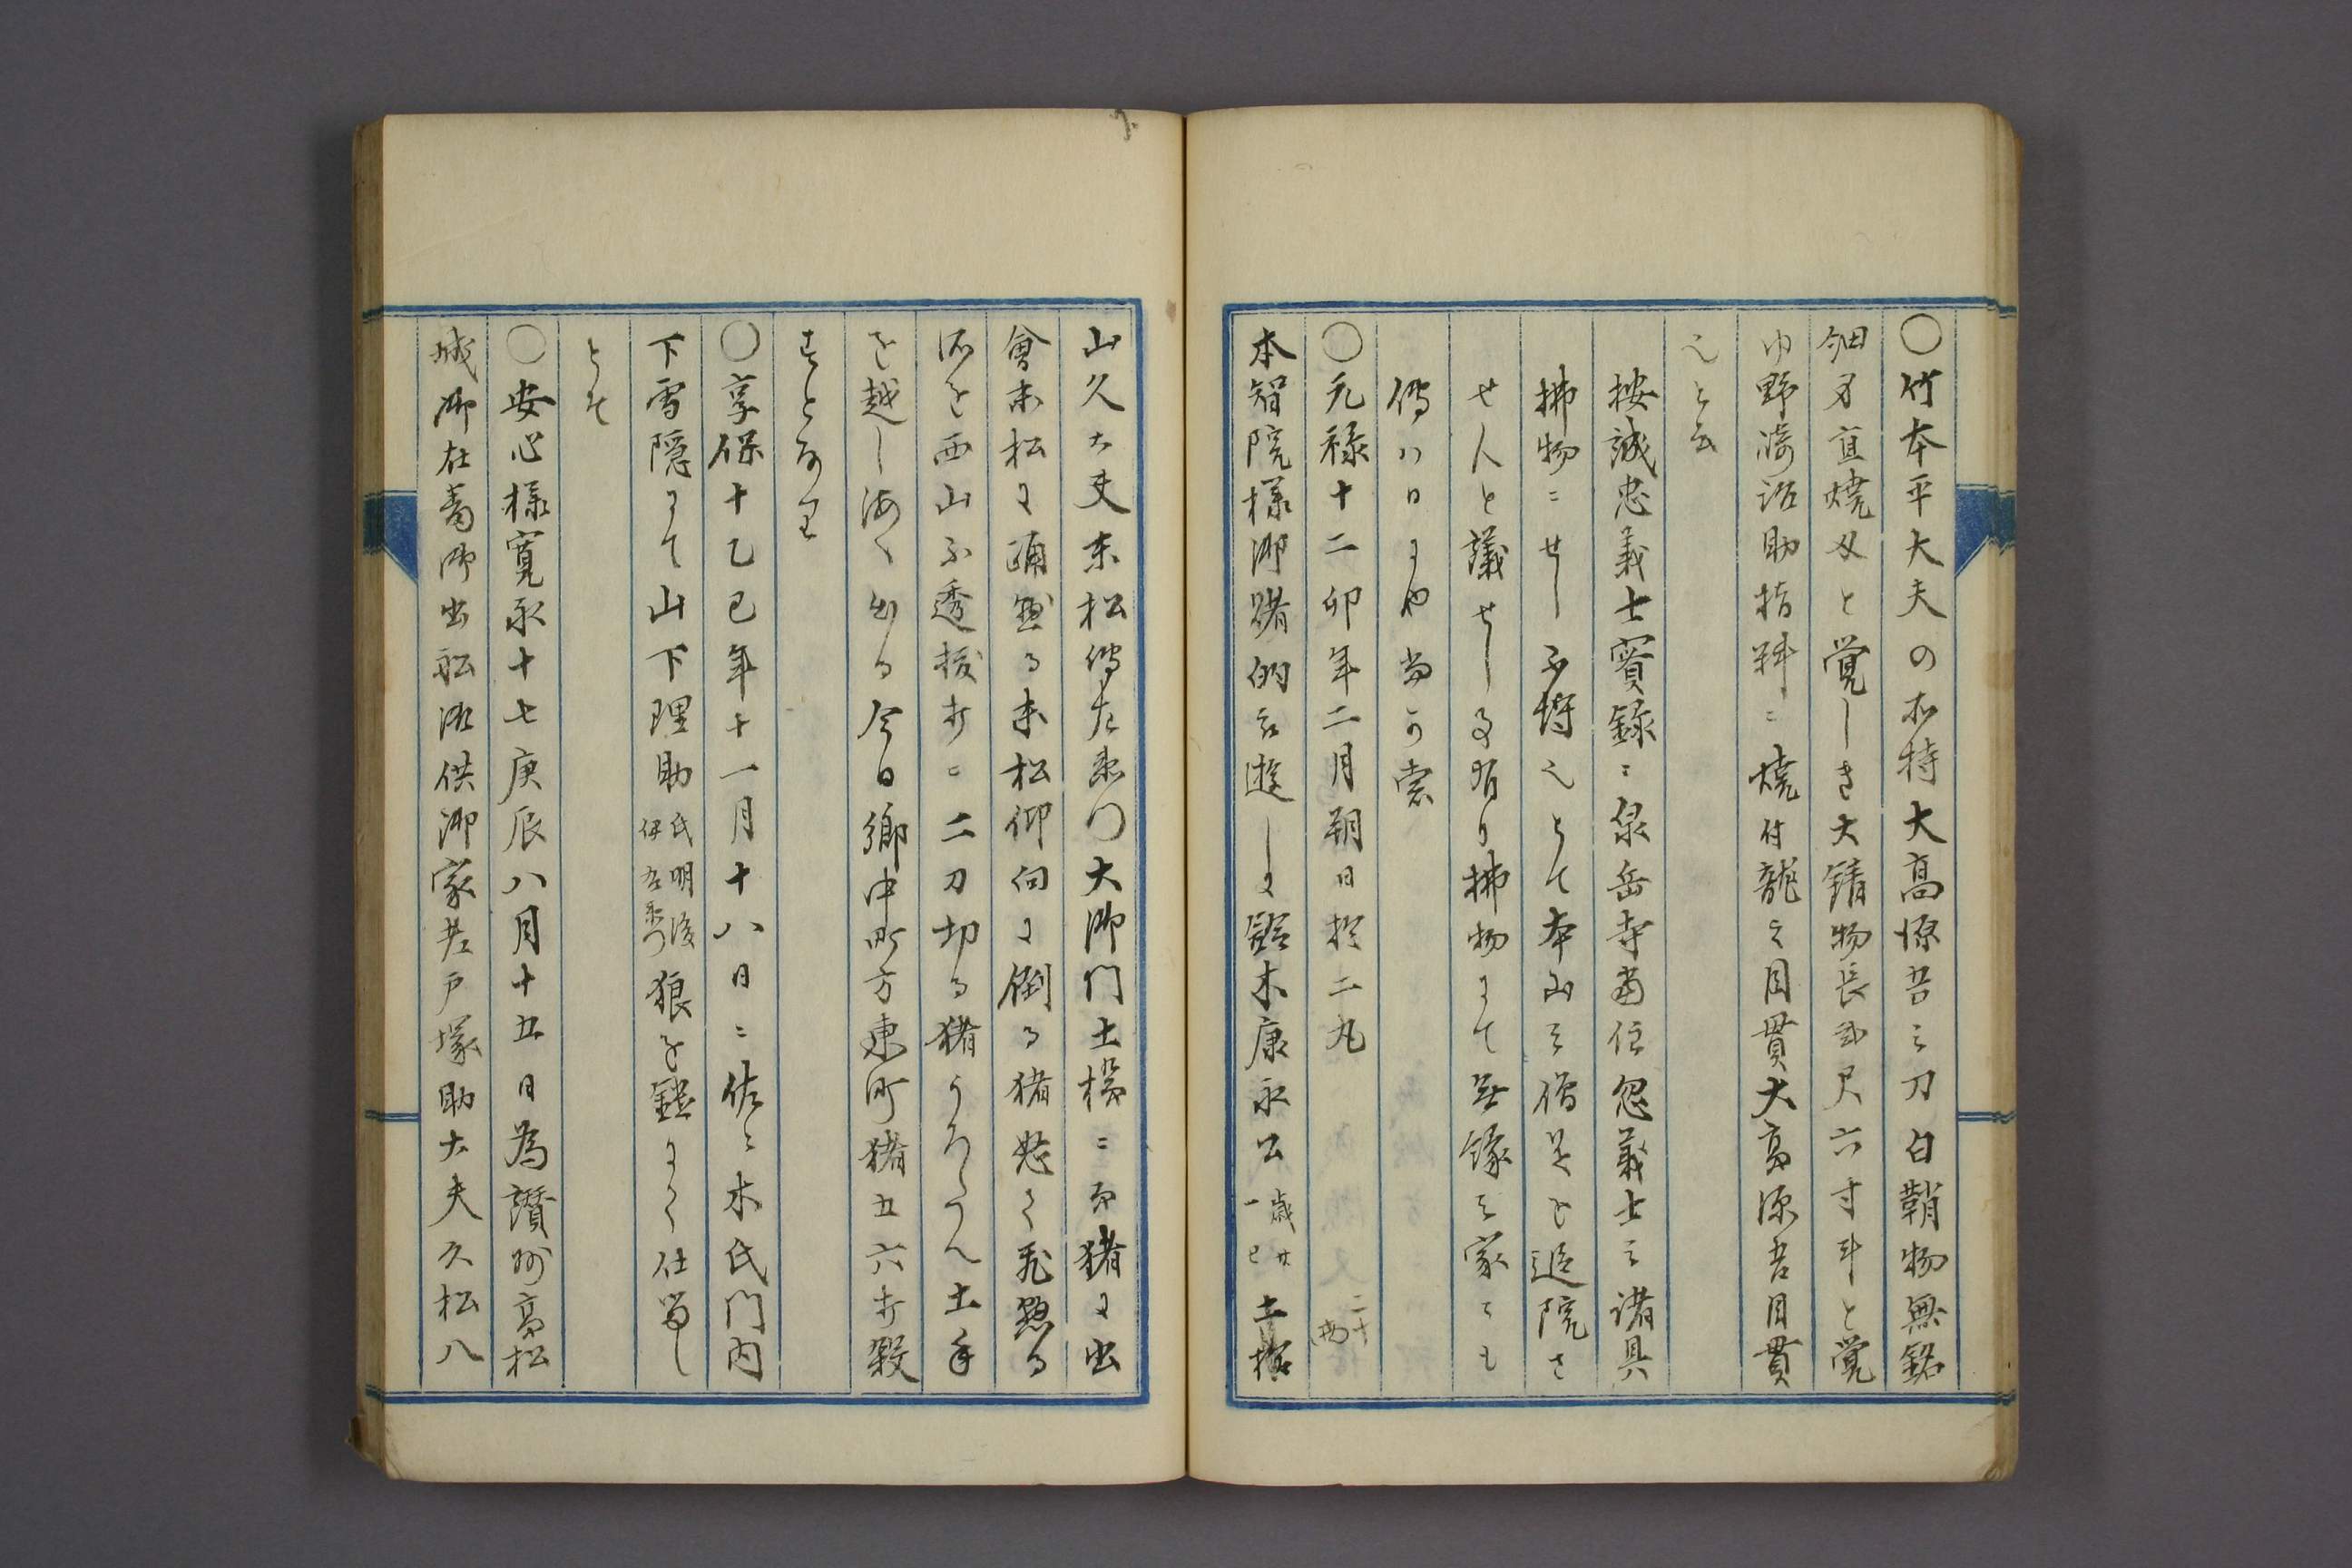 ○竹本平大夫の所持大髙源吾之刀白鞘物無銘
細刃直焼刃と覚しき大錆物長弐尺六寸斗と覚
ゆ野﨑治助指料ニ焼付龍之目貫大髙源吾目貫
也と云
按誠忠義士實録ニ泉岳寺當住忽義士之諸具
拂物ニせし不埒也とて本山より僧是を追院さ
せんと議せし事有り拂物にて無縁之家にも
傳ハりしや尚可索
○元禄十二卯年二月朔日於二丸
本智院様御猪的被遊しに鈴木康永公 歳廿一
山久大夫末松傳左衛門大御門土橋ニ而猪に出
會末松に通懸る末松仰向に倒る猪怒て飛懸る
所を西山不透抜打ニ二刀切る猪
を越し海へ出る今日郷中町方東町猪五六疋殺
すとなり
○享保十乙巳年十一月十八日ニ佐々木氏門内
下雪隠にて山下理助 氏明後 伊左衛門 狼を鎧にて仕留し
とそ
○安心様寛永十七庚辰八月十五日為讃州高松
城御在番御出船御供御家老戸塚助大夫久松八